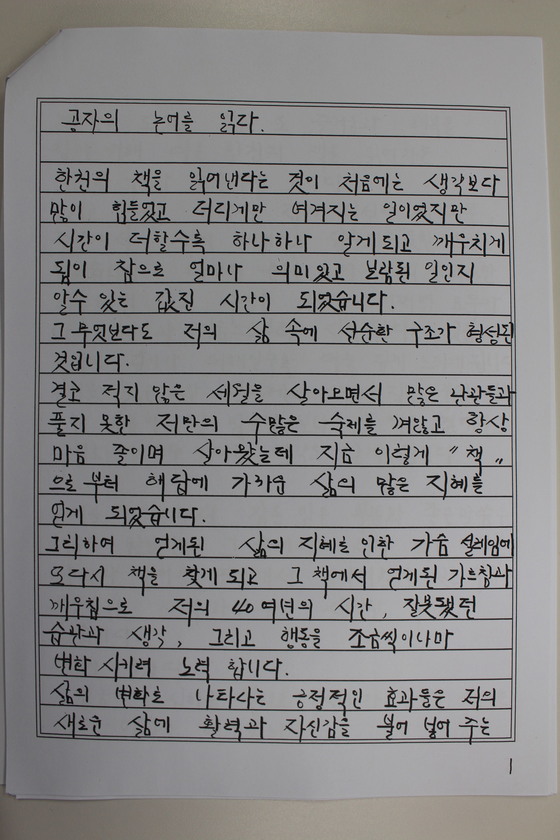 공자의 논어를 읽다.
한권의 책을 읽어낸다는 것이 처음에는 생각보다
많이 힘들었고 더디게만 여겨지는 일이었지만
시간이 더할수록 하나하나 알게되고 깨우치게
됨이 참으로 얼마나 의미있고 보람된 일인지
알수 있는 값진 시간이 되었습니다.
그 무엇보다도 저의 삶 속에 선순환 구조가 형성된
것입니다.
결코 적지 않은 세월을 살아오면서 많은 난관들과
풀지 못한 저만의 수많은 숙제를 껴안고 항상
마음 졸이며 살아왔는데 지금 이렇게 "책"
으로부터 해답에 가까운 삶의 많은 지혜를
얻게 되었습니다.
그리하여 얻게된 삶의 지혜로 인한 가슴 설레임에
또다시 책을 찾게 되고 그 책에서 얻게된 가르침과
깨우침으로 저의 40여년의 시간, 잘못됐던
습관과 생각, 그리고 행동을 조금씩이나마
변화 시키려 노력 합니다.
삶의 변화로 나타나는 긍정적인 효과들은 저의
새로운 삶에 활력과 자신감을 불어 넣어 주는
1